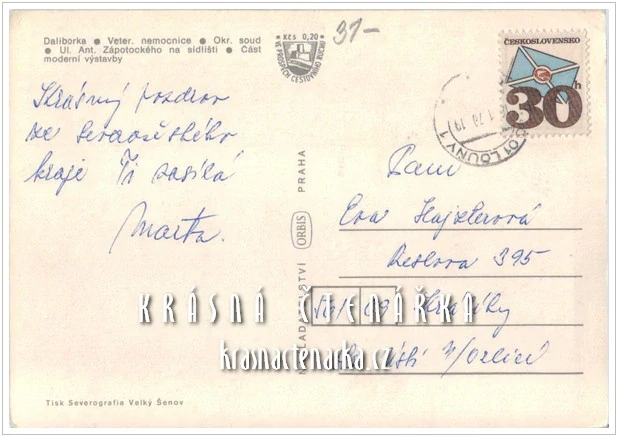 Daliborka • Veter. nemocnice • Okr. soud
• Ul. Ant. Zápotockého na sídlišti • Část
moderní výstavby
Kčs 0,20
VE PROSPĚCH CESTOVNÍHO RUCHU
31-
ČESKOSLOVENSKO
30h
LOUNY 1
Krásný pozdrav
ze
kraje Ti zasílá
Marta.
Paní
Eva Hajzlerová
395
561 69 Králíky
Ústí n/Orlicí
NAKLADATELSTVÍ ORBIS PRAHA
KRÁSNÁ ČTENÁŘKA
krasnactenarka.cz
Tisk Severografia Velký Šenov